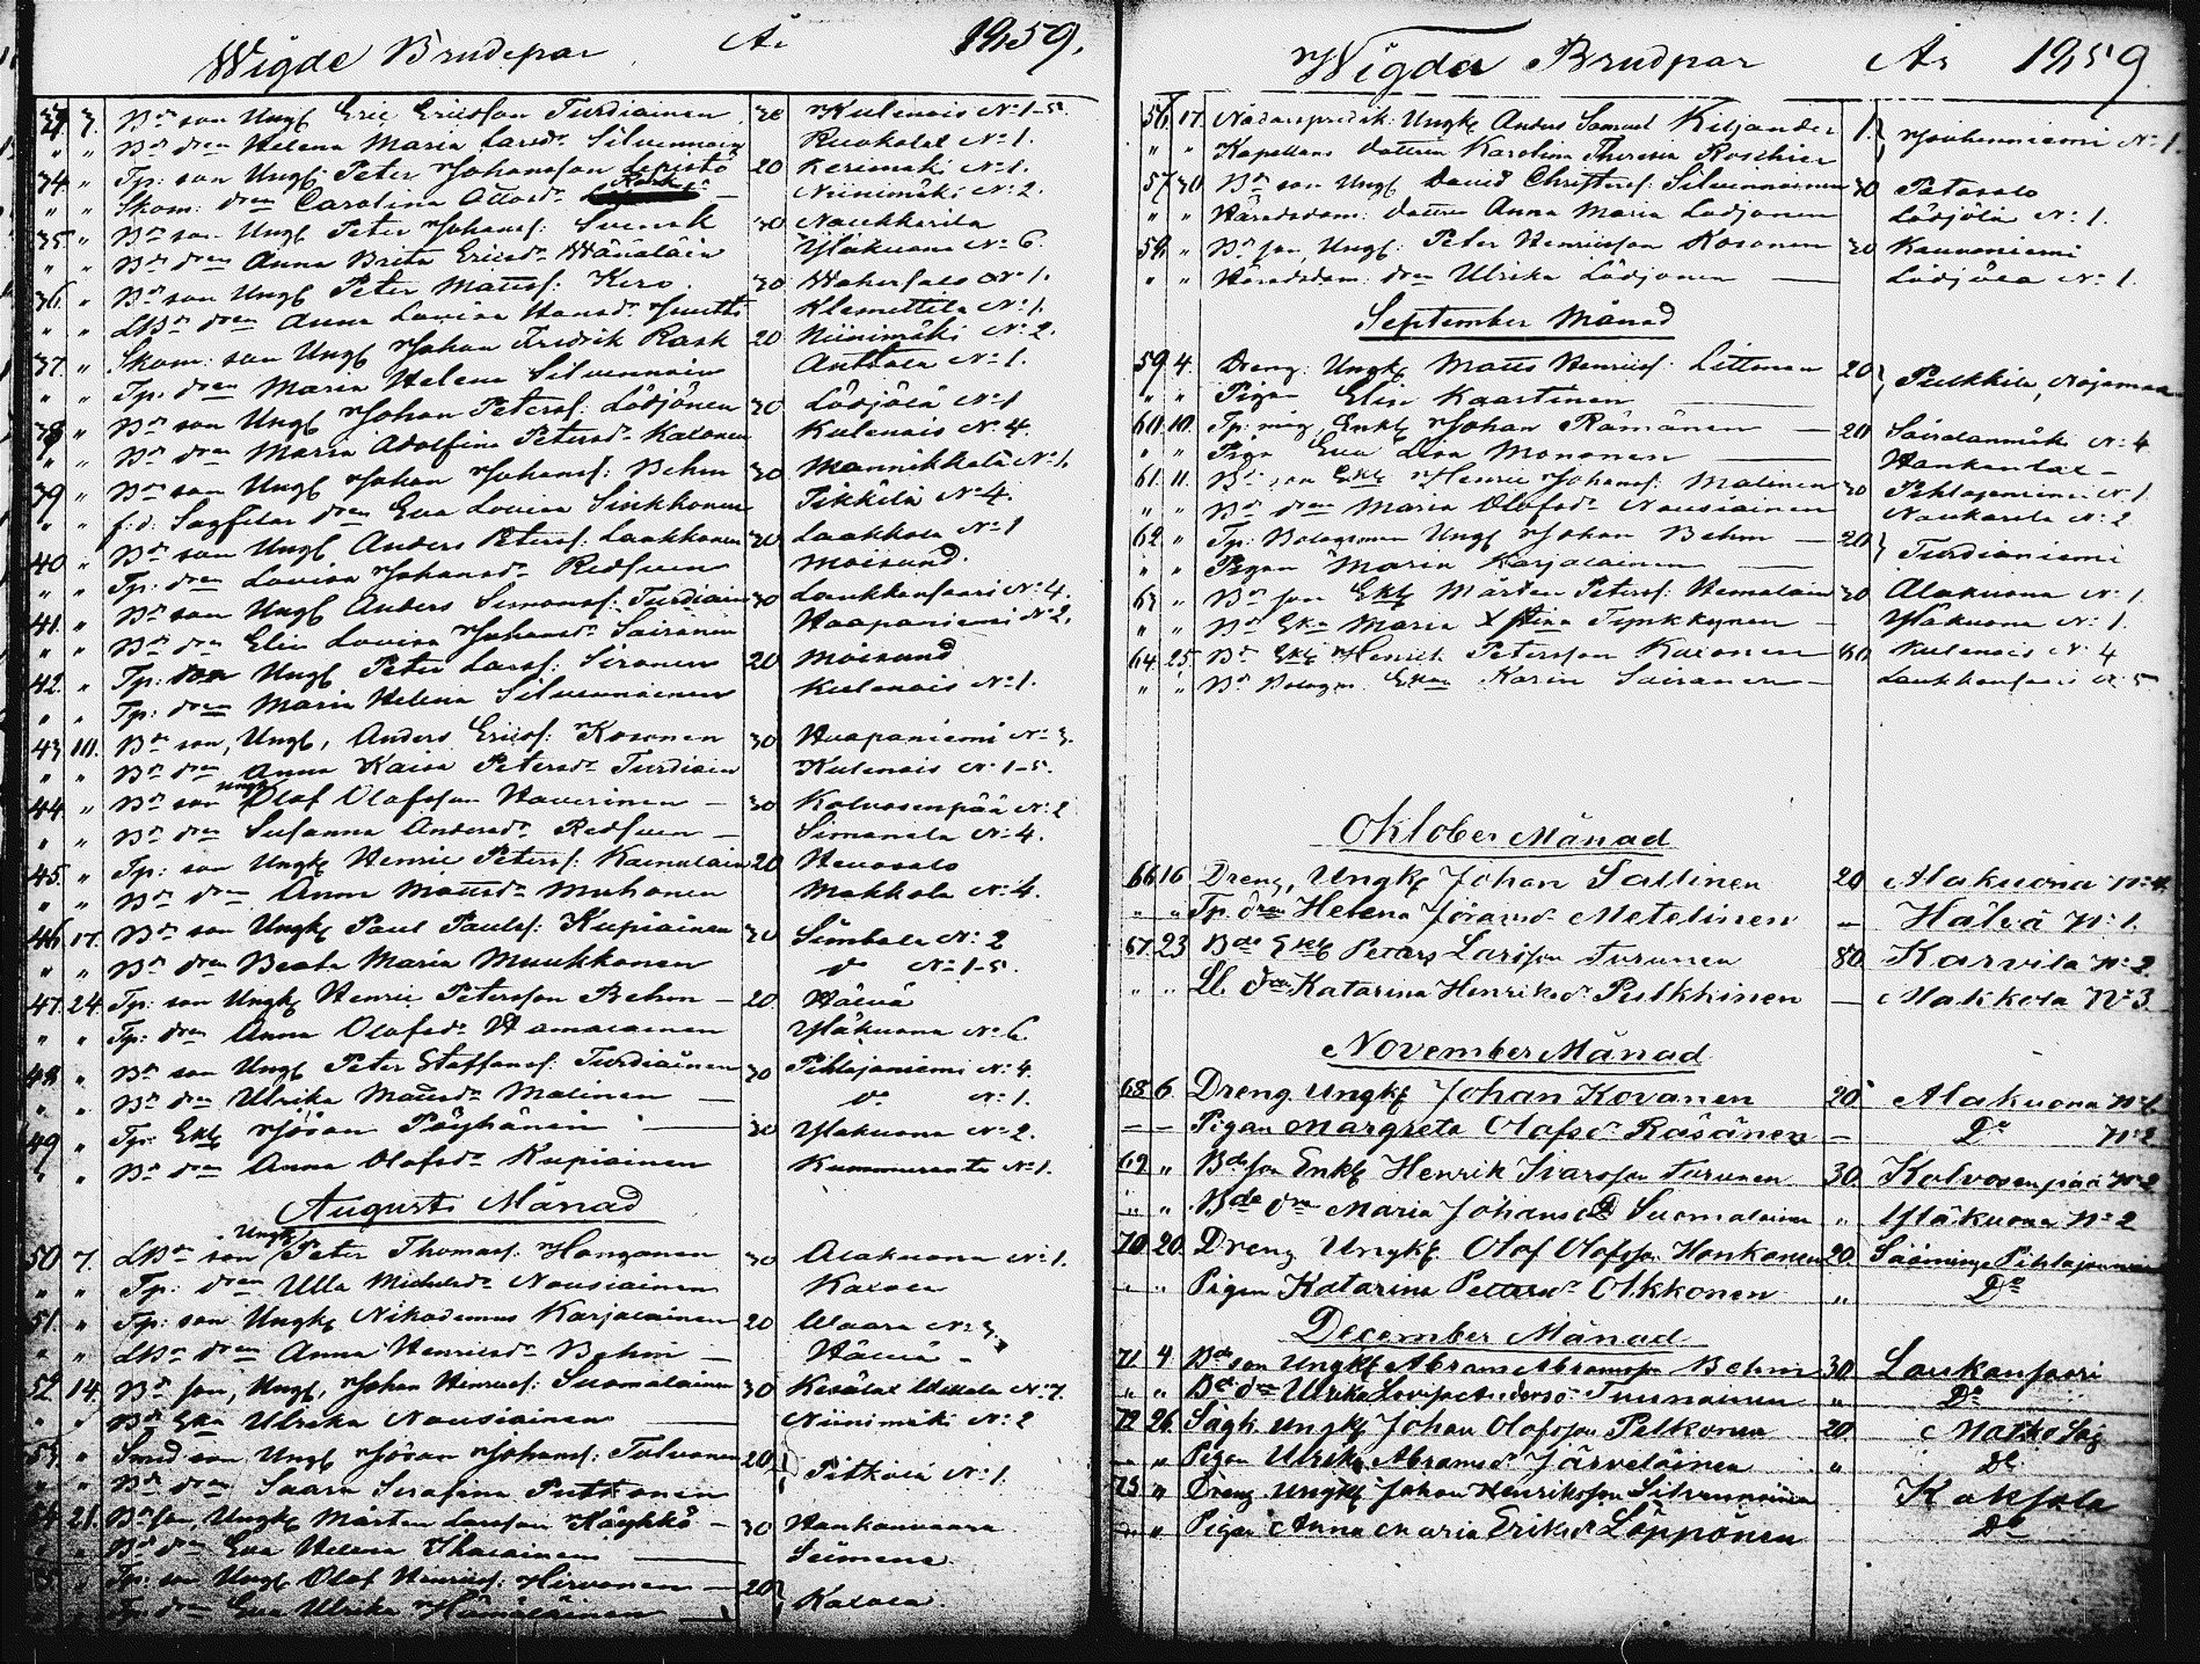 Wigde Brudepar År 1859.
33. 3. Bd. son Ungk. Eric Ericsson Turdiainen 30 Kulennois No 1-5.
" " Bd. dren Helena Maria Larsdr Silvennoin Ruokolax No 1.
34. " Tp: son Ungk. Peter Johansson Lepistö 20 Kerimäki No 1.
" " Skom: dren Carolina Ottosdr Rask Niinimäki No 2.
35. " Bd. son Ungk. Peter Johanss: Svensk 30 Naukkarila
" " Bd. dren Anna Brita Ericsdr Wänäläin Yläkuona No 6.
36. " Bd. son Ungk. Peter Mattss: Kero. 30 Wahersalo No 1.
" " LBd. dren Anna Lovisa Hansdr Smitti Klemettilä No 1.
37. " Skom: son Ungk. Johan Fredrik Rask 20 Niinimäki No 2.
" " Tp. dren Maria Helena Silvennoin Anttola No 1.
38 " Bd. son Ungk. Johan Peterss: Lödjönen 30 Lödjölä No 1
" " Bd. dren Maria Adolfina Petersdr Kaxonen Kulennois No 4.
39 " Bd. son Ungk. Johan Johanss: Behm 30 Mannikkala No 1.
" " f.d. Sagfilar dren Eva Lovisa Sinkkonen Tikkilä No 4.
40 " Bd. son Ungk. Anders Peterss: Laukkanen 30 Laukkala No 1
" " Tp: dren Lovisa Johansdr Redsven Moisund.
41. " Bd. son Ungk. Anders Simonss: Turdiain 30 Laukkansaari No 4.
" " Bd. dren Elin Lovisa Johansdr Sairanen Haapaniemi No 2.
42. " Tp: son Ungk. Peter Larss: Siranen 20 Moisund
" " Tp: dren Maria Helena Silvennoinen Kulennois No 1.
43 10. Bd. son, Ungk, Anders Ericss: Kosonen 30 Haapaniemi No 3.
" " Bd. dren Anna Kaisa Petersdr Turdiain Kulennois No 1-5.
44. " Bd. son Ungk. Olof Olofsson Haverinen — 30 Kolvosenpää No 2
" " Bd. dren Susanna Andersdr Redsven — Simanala No 4.
45. " Tp: son Ungk. Henric Peterss: Kainulain 20 Hevossalo
" " Bd. dren Anna Mattsdr Muhonen Makkola No 4.
46 17. Bd. son Ungk. Paul Paulss: Kupiainen 30 Simbala No 2
" " Bd. dren Beata Maria Muukkonen do No 1-5.
47. 24. Tp: son Ungk. Henric Petersson Behm — 20. Hälvä
" " Tp: dren Anna Olofsdr Hämäläinen Yläkuona No 6.
48 " Bd. son Ungk. Peter Staffanss: Turdiainen 30 Pihlajaniemi No 4.
" " Bd. dren Ulrika Mattsdr Malinen — do No 1.
49 " Tp: Enkl. Jöran Pöyhönen — 30 Yläkuona No 2.
" " Bd. dren Anna Olofsdr Kupiainen Kummunranta No 1.
Augusti Månad
50 7. LBd. son Ungk. Peter Thomass: Hanganen 30 Alakuona No 1.
" " Tp: dren Ulla Michelsdr Nousiainen Kaxola
51. " Tp: son Ungk. Nikodemus Karjalainen 20 Waara No 3.
" " LBd. dren Anna Henricsdr Behm — Hälvä —
52. 14. Bd. son, Ungk, Johan Henricss: Suomalainen 30 Kesälax No 7.
" " Bd. Eka Ulrika Nousiainen — Niinimäki No 2
53. " Smed son Ungk Jöran Johanss: Tolvanen 20 } Pitkälä No 1.
" " Bd. dren Saara Serafina Puttonen
54. 21. Bd. son, Ungk. Mårten Larsson Käyhkö — 30 Hankanvaara
" " Bd. dren Eva Helena Ihalainen — Seimene
55 " Tp: son Ungk. Olof Henricss: Hirvonen — 20 } Kaxola.
" " Tp: dren Eva Ulrika Hämäläinen —
Wigda Brudpar År 1859
56. 17. Nådårspredik: Ungk. Anders Samuel Kiljander 1. } Jouhenniemi No 1.
" " Kapellans dottren Karolina Theresia Roschier
57 30 Bd. son Ungk. David Christerss: Silvennoinen 30 Patasalo
" " Häradsdom: dottren Anna Maria Lödjönen Lödjölä No 1.
58. " Bd. son, Ungk: Peter Henricsson Kosonen 30 Kauvoniemi
" " Häradsdom: dren Ulrika Lödjönen — Lödjölä No 1.
September Månad
59 4. Dreng: Ungk. Matts Henricss: Littman 20 } Pulkkila, Nojamaa
" " Pigan Elin Kaartinen —
60. 10. Tp: måg, Enkl. Johan Rämänen — 20 Sairalanmäki No 4
" " Piga Eva Lisa Mononen — Hankantai —
61. 11. Bd. son Enkl. Henric Johanss: Malinen 30 Pihlajaniemi No 1
" " Bd. dren Maria Olofsdr Nousiainen Naukarila No 2
62. " Tp: Bolagsman Ungk Johan Behm — 20 } Turdianiemi
" " Pigan Maria Karjalainen —
63 " Bd. son Enkl. Mårten Peterss: Hemäläin 30 Alakuona No 1.
" " Bd. Eka Maria Stina Tynkkynen — Yläkuona No 1.
64. 25. Bd. Enkl. Henrik Petersson Kaxonen 80 Kulennois No 4
" " Bd. Bolagsm. Ekan Karin Sairanen — Laukkansaari No 5
Oktober Månad
66 16 Dreng, Ungk. Johan Sallinen 20 Alakuona No 4.
" " Tp. dren Helena Jöransdr Metelinen — Hälvä No 1.
67. 23 Bde Enkl Petter Larsson Turunen 80 Karvila No 2.
" " Ll. dren Katarina Henriksdr Pulkkinen — Makkola No 3.
November Månad
68 6. Dreng Ungk. Johan Kovanen 20 Alakuona No 6
— — Pigan Margreta Olofsdr Räsänen — Do No 2
69 " Bdeson Enkl Henrik Ivarsson Turunen 30. Kolvosenpää No 2
" " Bde dren Maria Johansdr Suomalainen " Yläkuona No 2
70. 20. Dreng Ungk. Olof Olofsson Honkanen 20. Sääminge Pihlajaniemi
— " Pigan Katarina Pettersdr Olkkonen " Do
December Månad
71 4 Bde son Ungk Abram Abramsson Behm 30. Laukansaari
" " Bde dren Ulrika Lovisa Andersdr Tuunainen " Do
72 26. Sågk. Ungk Johan Olofsson Pelkonen 20. Matko Såg
— " Pigan Ulrika Abramsdr Järveläinen " Do
73 " Dreng Ungk. Johan Henriksson Silvennoinen Koksola
— " Pigan Anna Maria Eriksdr Löppönen Do